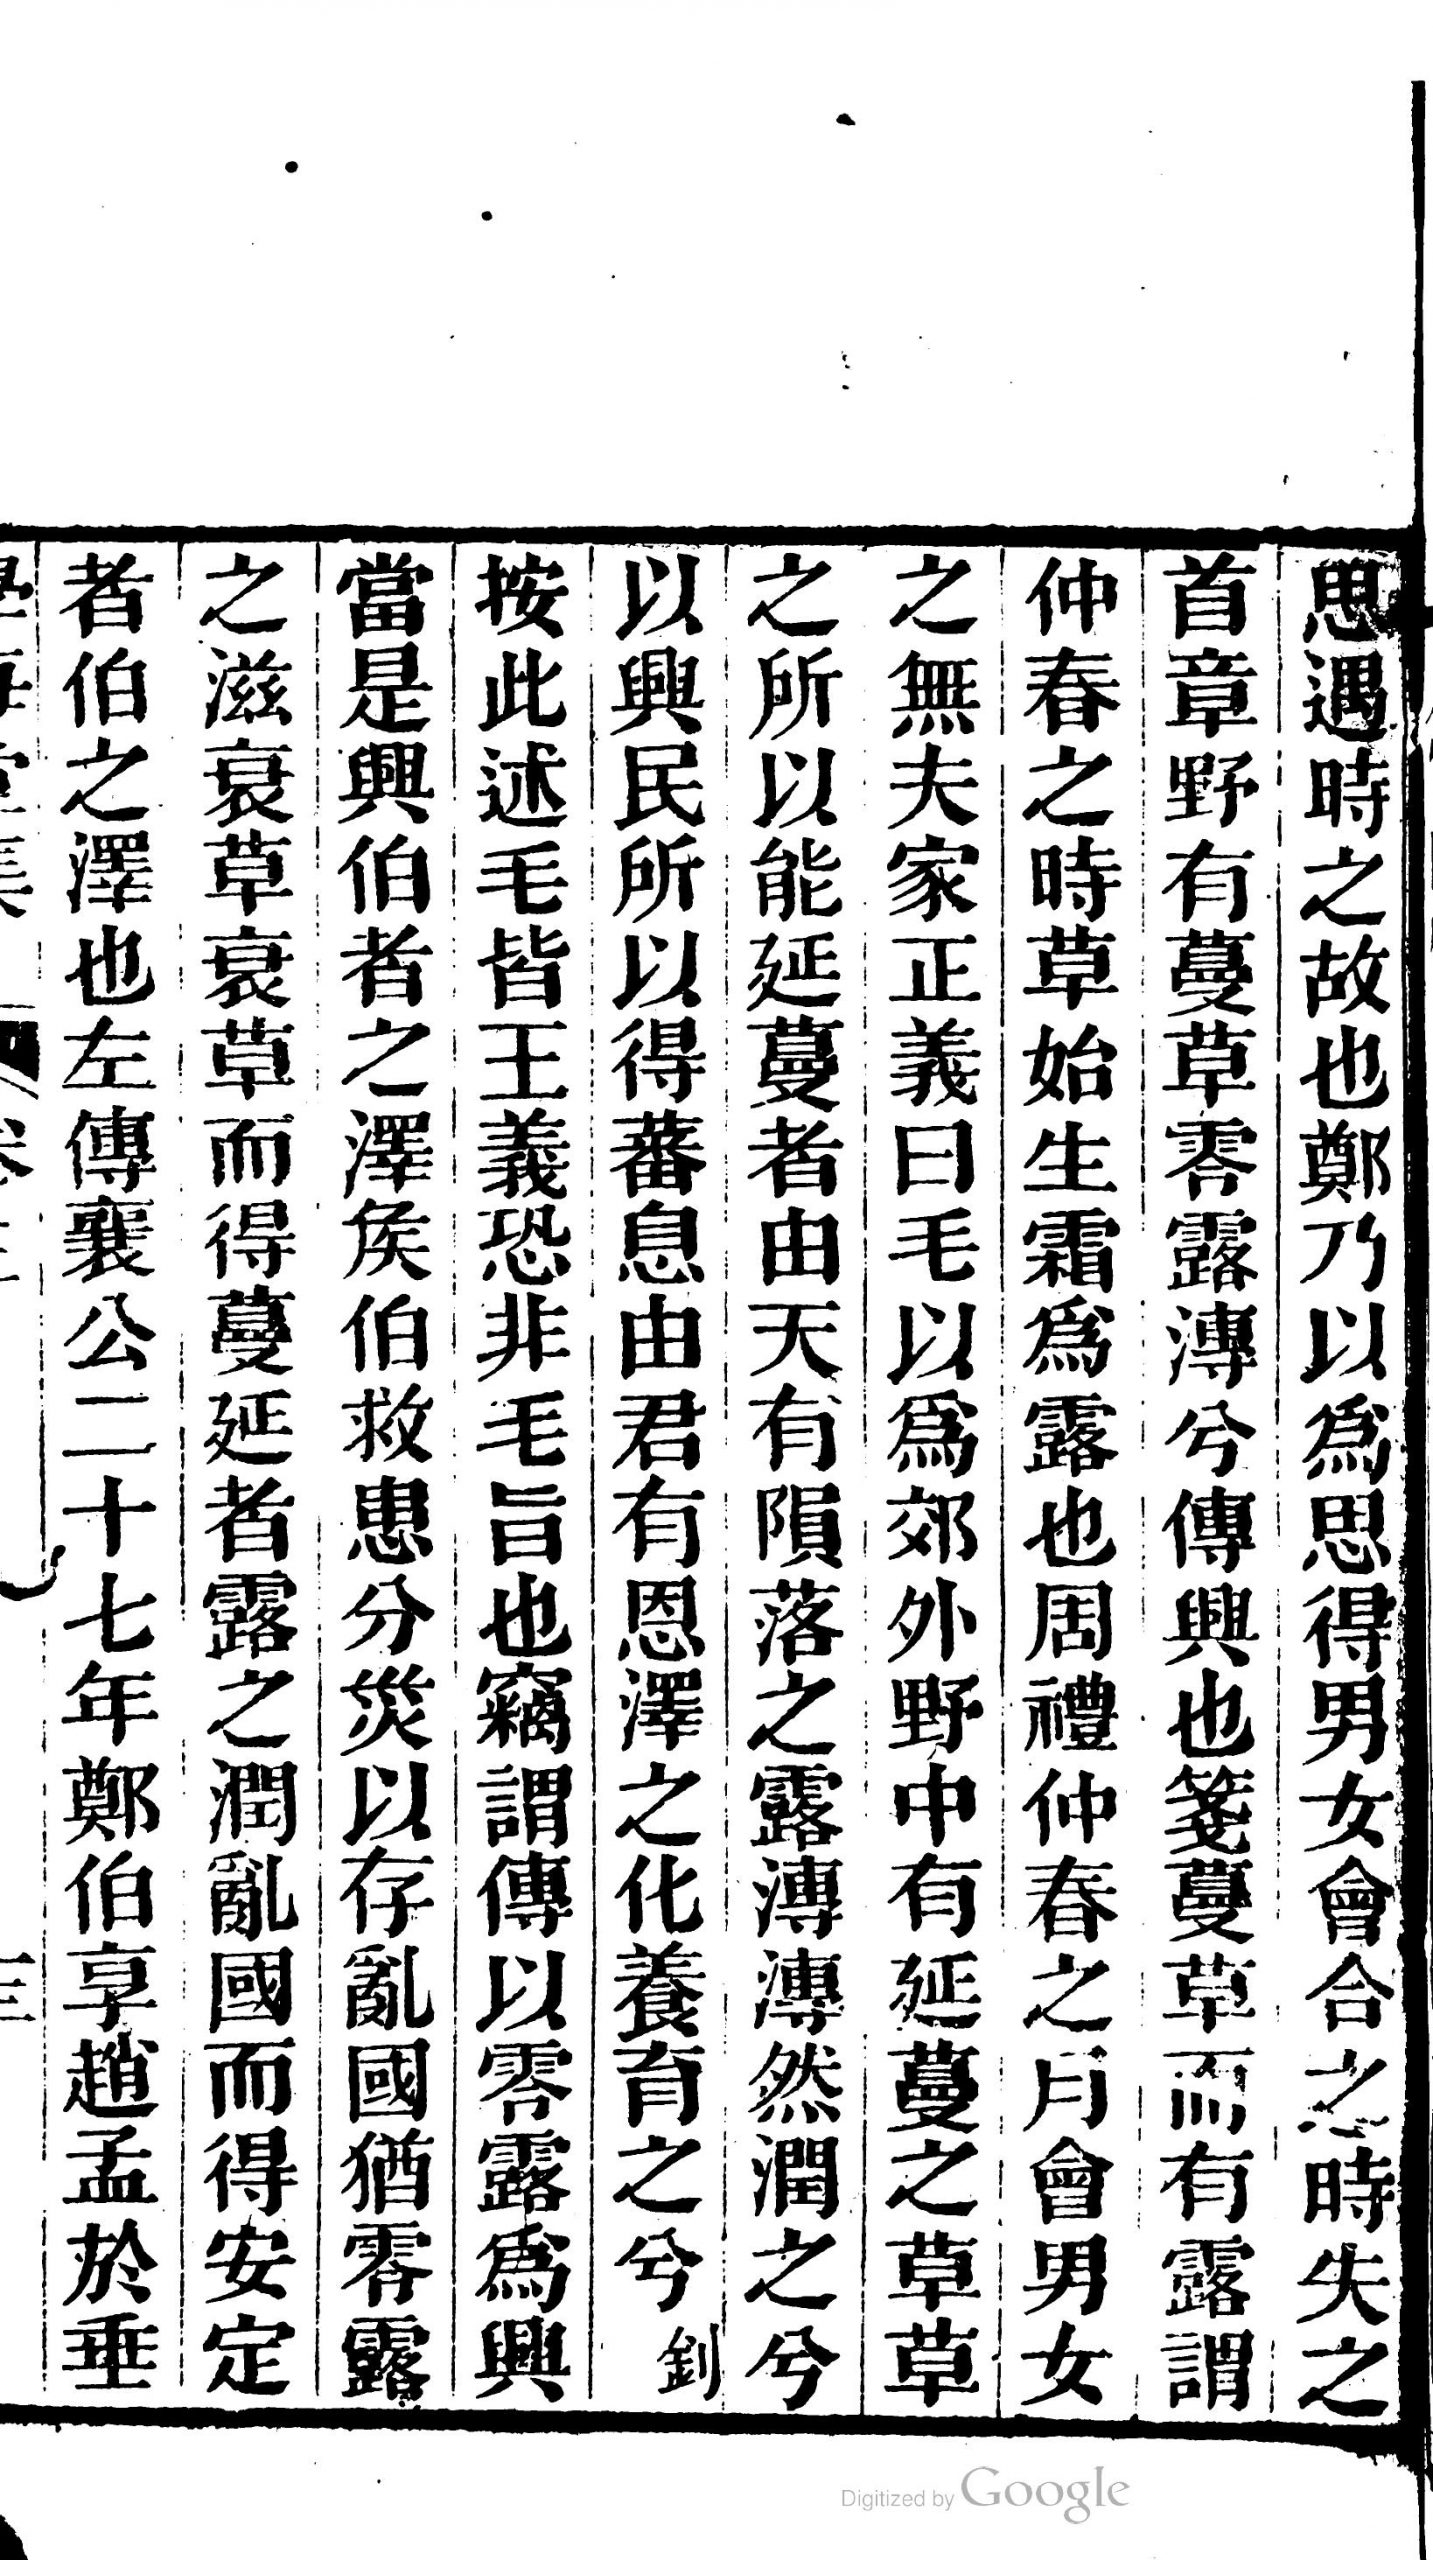 思遇時之故也鄭乃以爲思得男女會合之時失之
首章野有蔓草零露漙兮傳興也箋蔓草而有露謂
仲春之時草始生霜爲露也周禮仲春之月會男女
之無夫家正義曰毛以爲郊外野中有延蔓之草草
之所以能延蔓者由天有隕落之露漙漙然潤之兮
以興民所以得蕃息由君有恩澤之化養育之兮釗
按此述毛皆王義恐非毛旨也竊謂傳以零露爲興
當是興伯者之澤矦伯救患分災以存亂國猶零露
之滋衰草衰草而得蔓延者露之潤亂國而得安定
者伯之澤也左傳襄公二十七年鄭伯享趙孟於垂
Digitized by Google